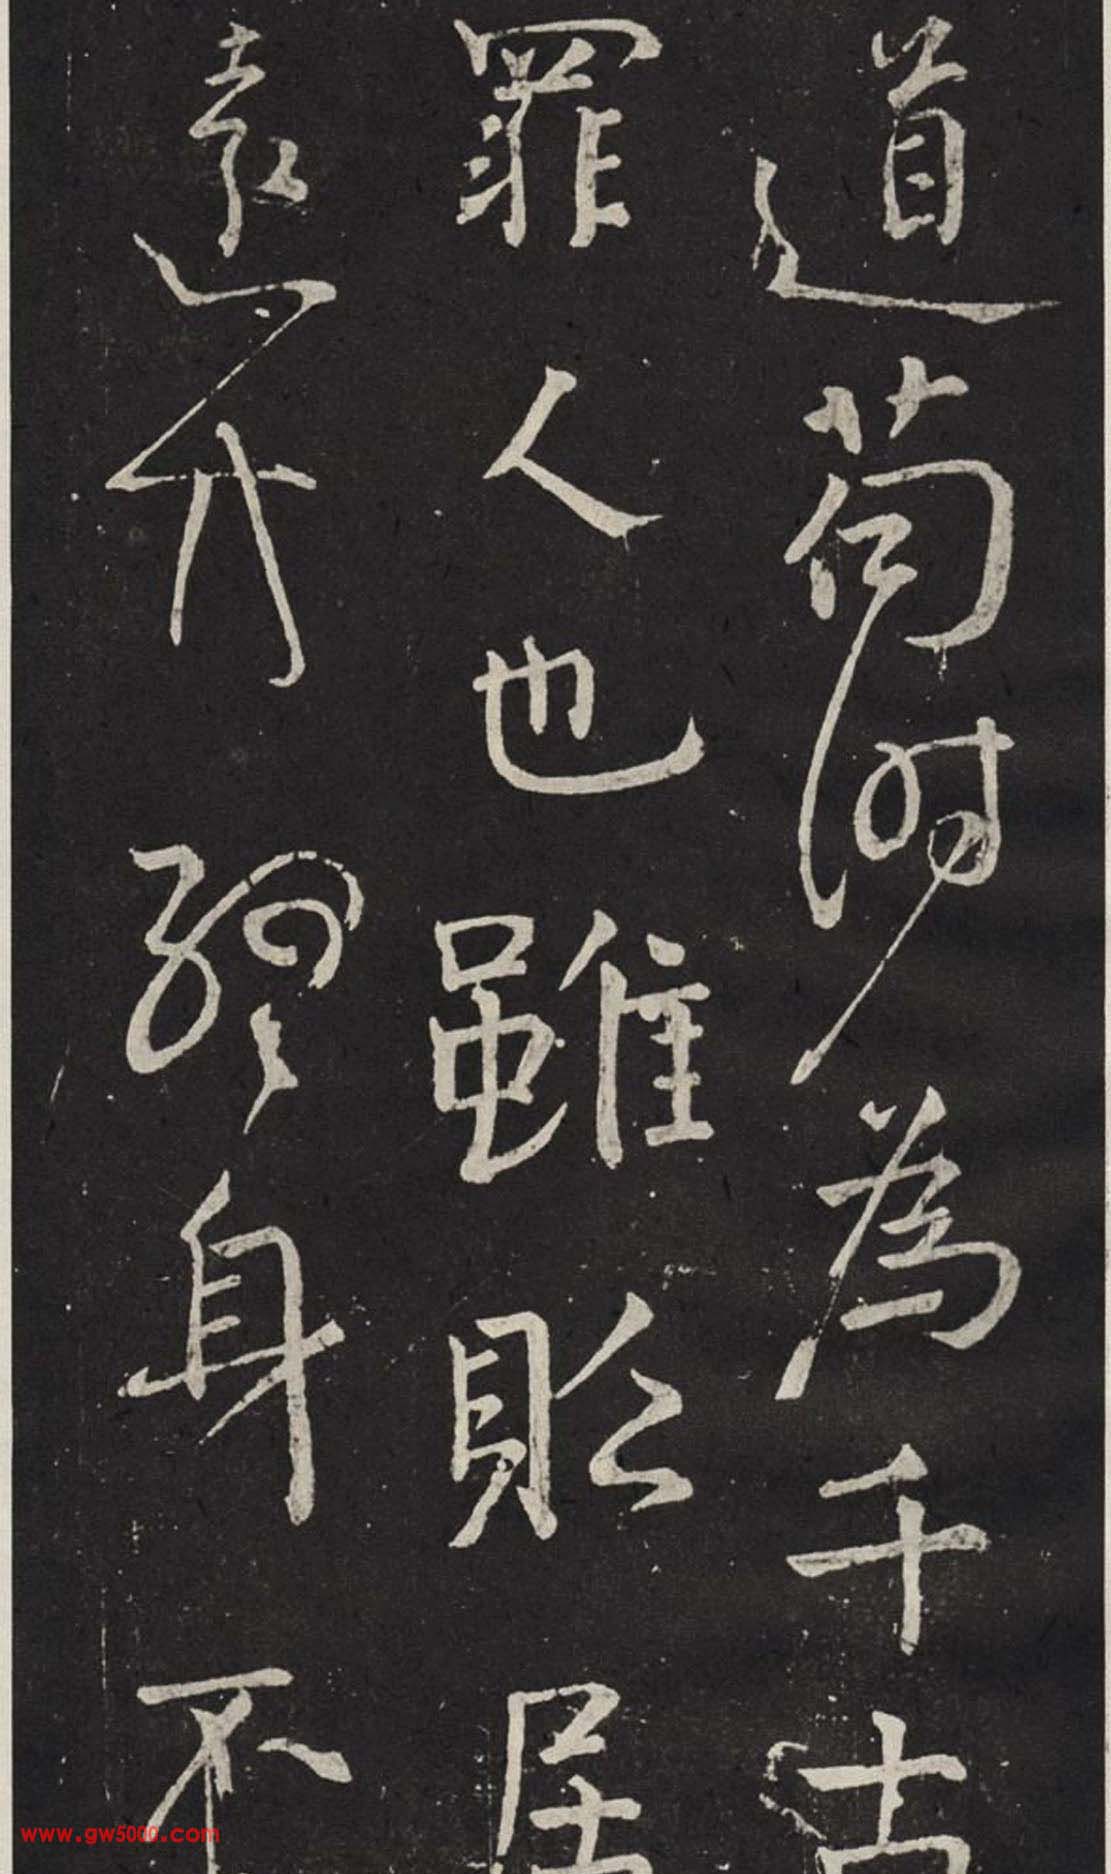 道苟時為千古
罪人也雖貶居
遠方終身不
www.gw5000.com